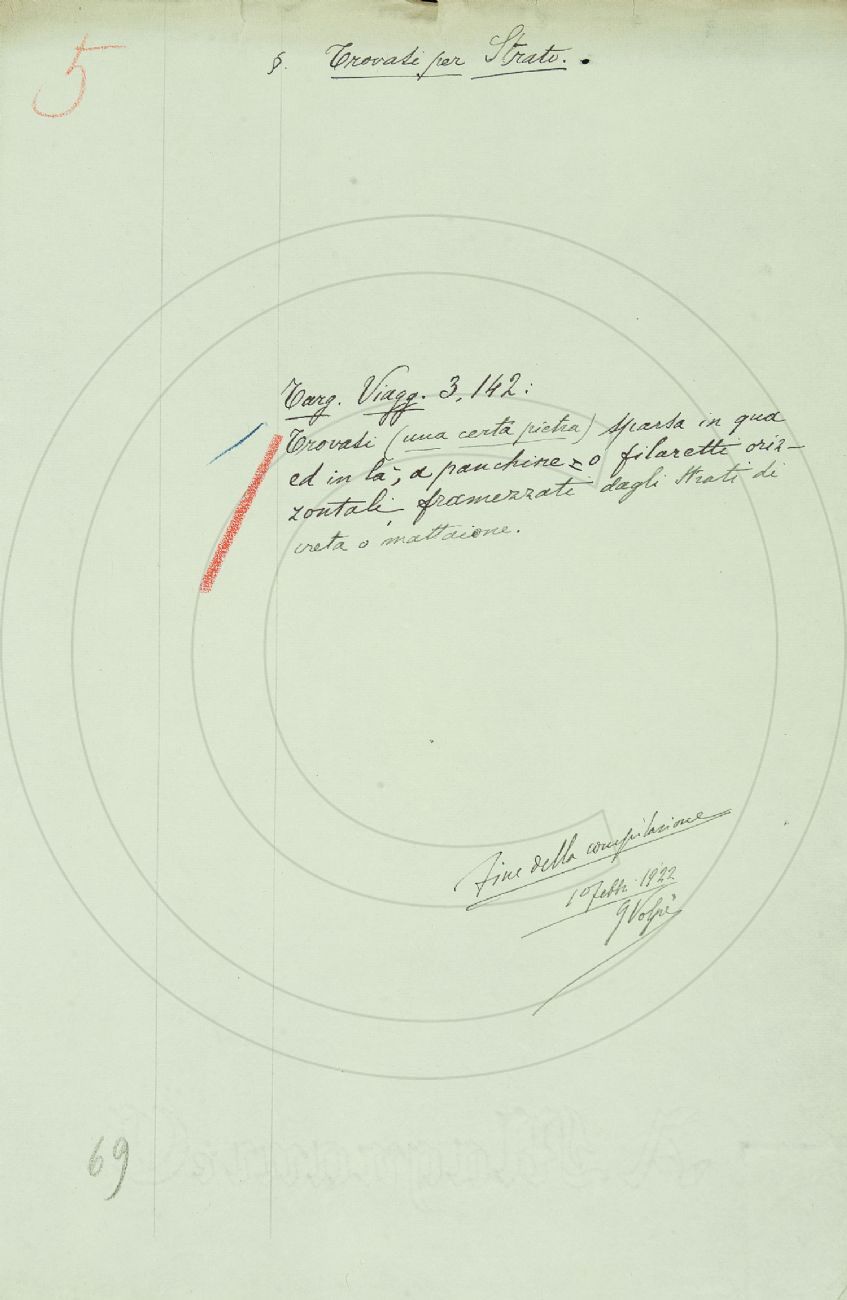 5
§. Trovasi per Strato.
Targ. Viagg. 3, 142:
Trovasi (una certa pietra) sparsa in qua
ed in là, a panchine = o filaretti oriz-
zontali, framezzati dagli strati di
creta o mattaione.
Fine della compilazione
10 febb. 1922
G Volpi
69